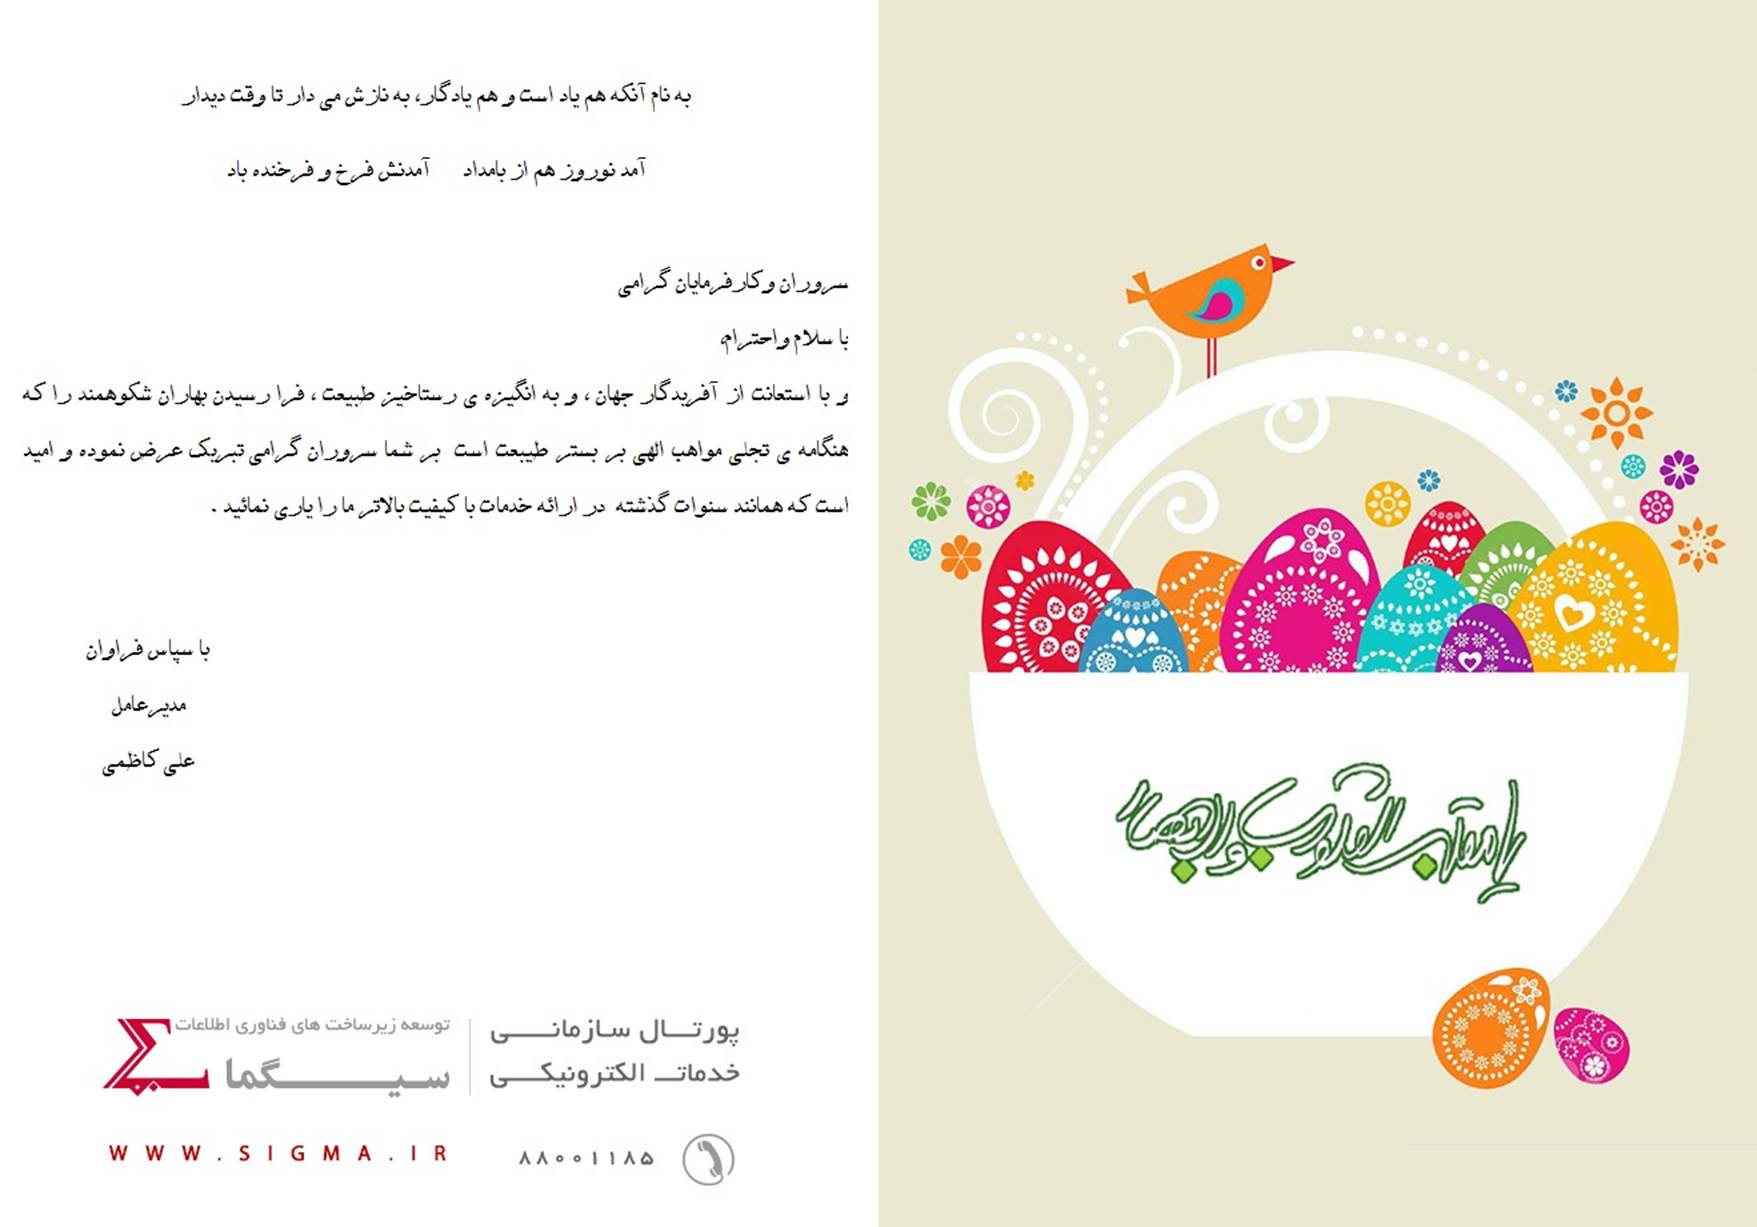 به نام آنکه هم یاد است و هم یادگار، به نازش می دار تا وقت دیدار
آمد نوروز هم از بامداد آمدنش فرخ و فرخنده باد
سروران وکارفرمایان گرامی
با سلام واحترام،
و با استعانت از آفریدگار جهان ، و به انگیزه ی رستاخیز طبیعت ، فرا رسیدن بهاران شکوهمند را که
هنگامه ی تجلی مواهب الهی بر بستر طبیعت است بر شما سروران گرامی تبریک عرض نموده و امید
است که همانند سنوات گذشته در ارائه خدمات با کیفیت بالاتر ما را یاری نمائید .
با سپاس فراوان
مدیرعامل
علی کاظمی
پورتال سازمانی
خدمات الکترونیکی
توسعه زیرساخت های فناوری اطلاعات
سیگما
۸۸۰۰۱۱۸۵
WWW.SIGMA.IR
یا مقلب القلوب و الابصار